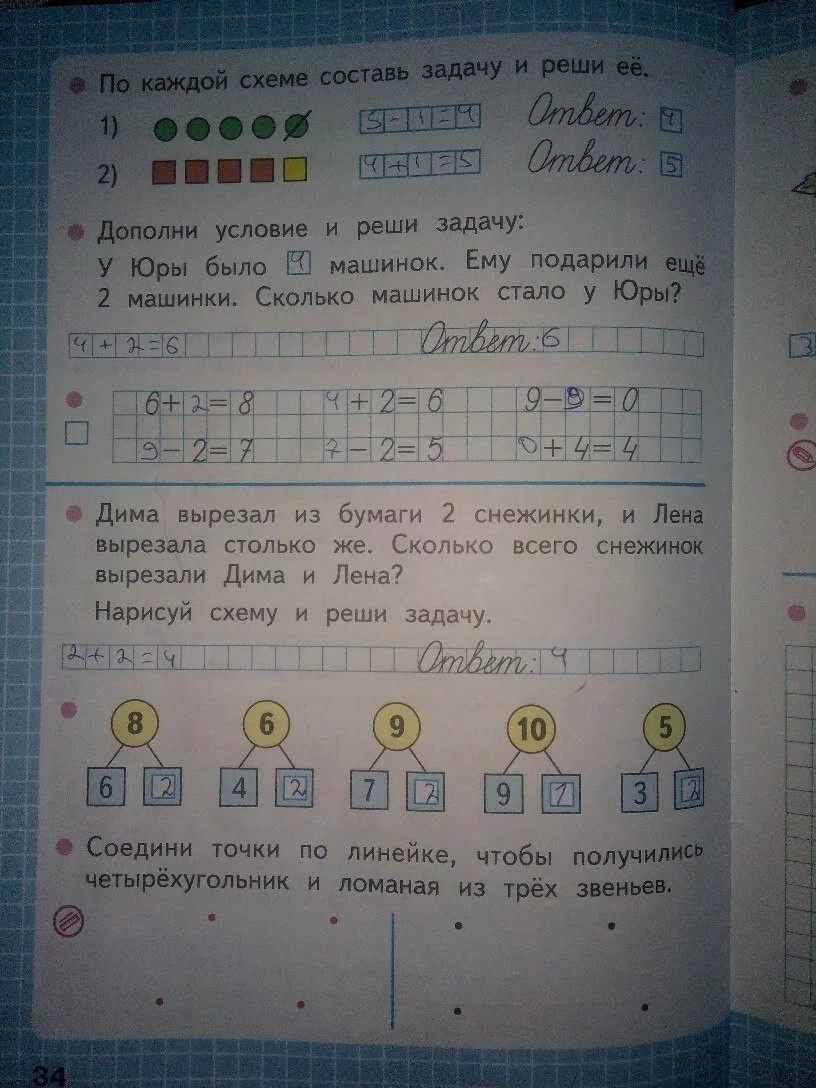 По каждой схеме составь задачу и реши её.
1) 5-1=4 Ответ: 4
2) 4+1=5 Ответ: 5
Дополни условие и реши задачу:
У Юры было 4 машинок. Ему подарили ещё
2 машинки. Сколько машинок стало у Юры?
4+2=6 Ответ: 6
6+2=8 4+2=6 9-9=0
9-2=7 7-2=5 0+4=4
3
Дима вырезал из бумаги 2 снежинки, и Лена
вырезала столько же. Сколько всего снежинок
вырезали Дима и Лена?
Нарисуй схему и реши задачу.
2+2=4 Ответ: 4
8 6 9 10 5
6 2 4 2 7 2 9 1 3 2
Соедини точки по линейке, чтобы получились
четырёхугольник и ломаная из трёх звеньев.
34